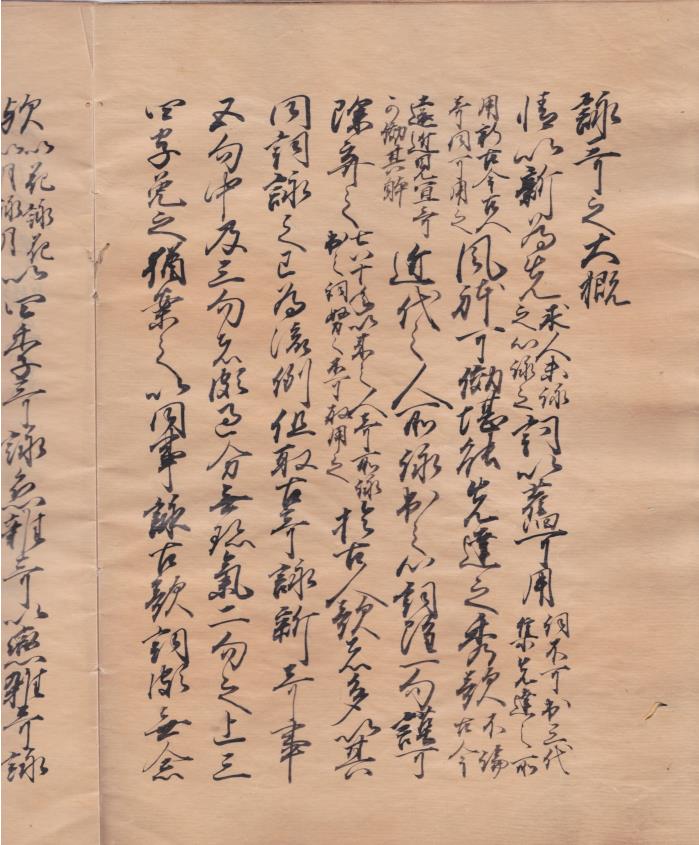 詠哥之大概
情以新為先求人未詠之心詠之詞以舊可用詞不可出三代集先達之所
用新古今古人哥同可用之風躰可效堪能先達之秀歌不論古今
遠近見宜哥可效其躰近代之人所詠出之心詞雖一句謹可
除弃之七八十年以来之人哥所詠出之詞努々不可取用之於古人歌者多以其
同詞詠之已為流例但取古哥詠新哥事
五句中及三句者頗過分無珍氣二句之上三
四字免之猶案之以同事詠古歌詞頗無念
歟以花詠花以月詠月以四季哥詠恋雜哥以戀雜哥詠